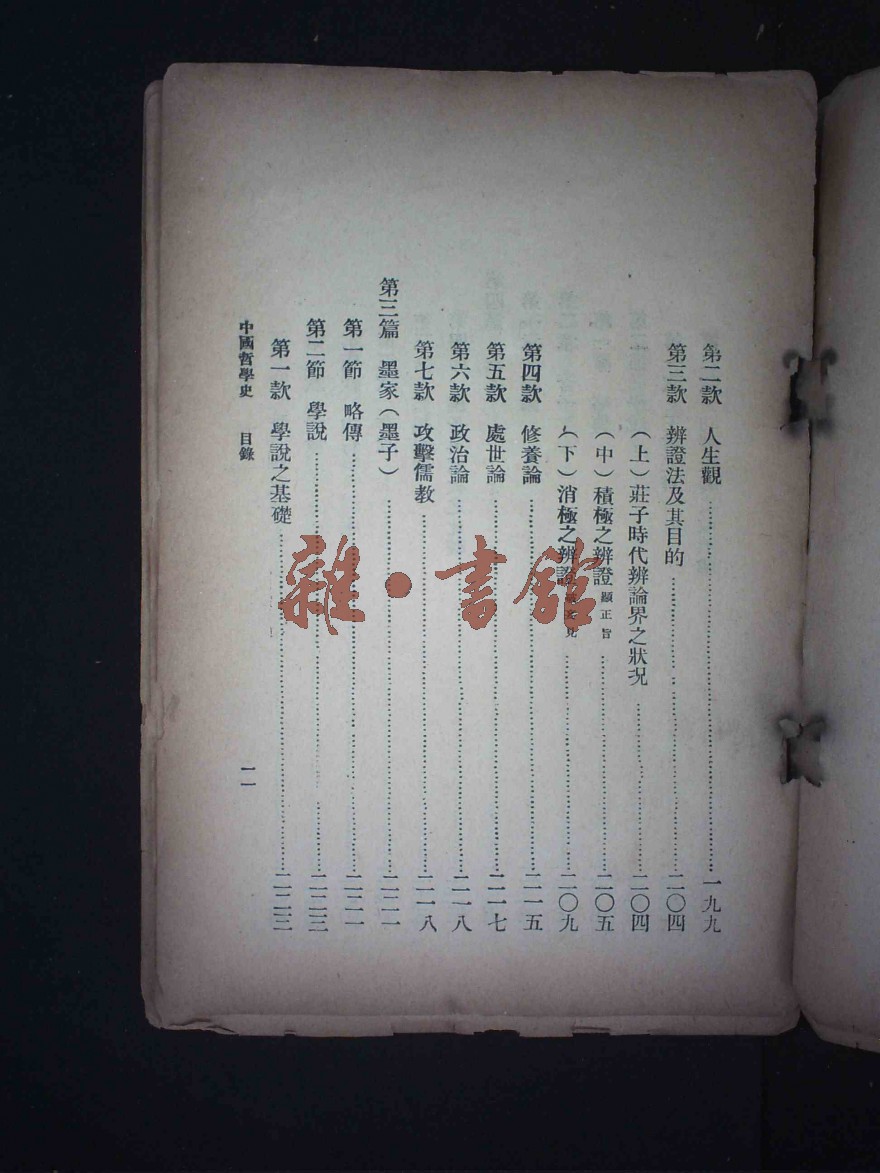 第二款　人生觀……一九九
第三款　辨證法及其目的……二〇四
（上）莊子時代辨論界之狀況……二〇四
（中）積極之辨證顯正旨……二〇五
（下）消極之辨證……二〇九
第四款　修養論……二一五
第五款　處世論……二一七
第六款　政治論……二一八
第七款　攻擊儒教……二一八
第三篇　墨家（墨子）……二二一
第一節　略傳……二二一
第二節　學說……二二三
第一款　學說之基礎……二二三
中國哲學史　目錄　一一
雜·書館